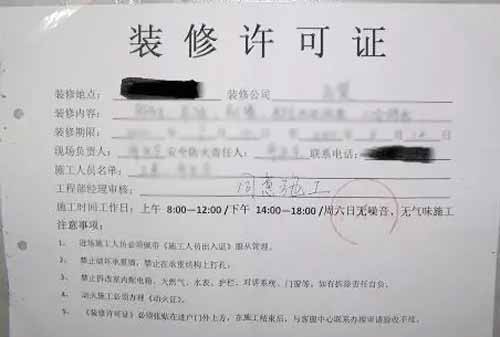 装修许可证
装修地点： 装修公司
装修内容：
装修期限：
现场负责人： 安全防火责任人： 联系电话：
施工人员名单：
工程部经理审核： 同意施工
施工时间工作日：上午 8:00—12:00 /下午 14:00—18:00 /周六日无噪音，无气味施工
注意事项：
1、 进场施工人员必须佩带《施工人员出入证》服从管理。
2、 禁止破坏承重墙，禁止在承重结构上打孔。
3、 禁止拆改室内配电箱、天然气、水表、护栏、对讲系统、门窗等，如有拆除责任自负。
4、 动火施工必须办理《动火证》。
5、 《装修许可证》必须张贴在进户门外上方，在施工结束后，与客服中心联系办理申请验收手续。